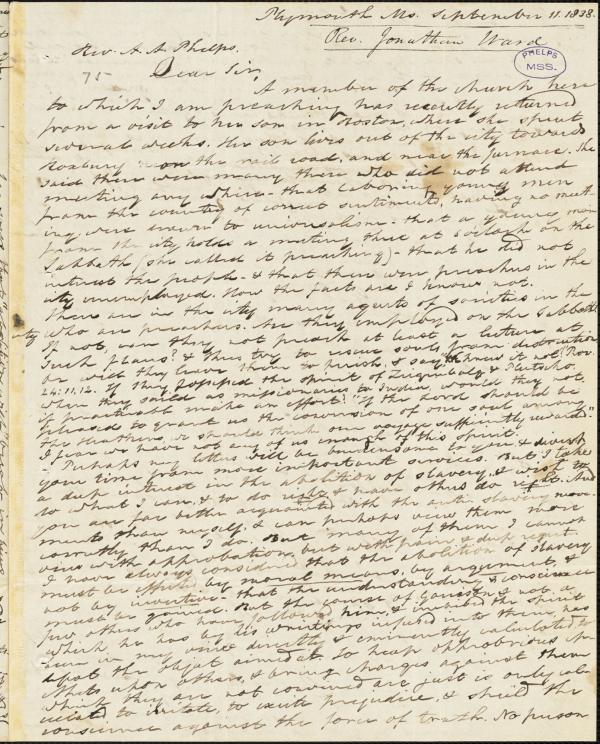 Plymouth Ms. September 11. 1838.
Rev. Jonathan Ward
Rev. A. A. Phelps.
PHELPS
MSS.
75
Dear Sir,
A member of the church here
to which I am preaching has recently returned
from a visit to her son in Boston, where she spent
several weeks. Her son lives out of the city towards
Roxbury on the rail road, and near the furnace. She
said there were many there who did not attend
meeting any where - that laboring young men
from the country of correct sentiments, having no meet-
ing, were drawn to universalism - that a young man
from the city holds a meeting there at 5 o'clock on the
Sabbath (she called it preaching) - that he did not
interest the people - & that there were preachers in the
city unemployed. How the facts are I know not.
There are in the city many agents of societies in the
city who are preachers. Are they employed on the Sabbath
If not, can they not preach at least a lecture at
such places? & thus try to rescue souls from destruction
or will they leave them to perish, & say "we knew it not (Prov.
24:11,12. If they possessed the spirit of Ziegenbalg & Plutscho
when they sailed as missionaries to India, would they not
if practicable make an effort? "If the Lord should be
pleased to grant us the conversion of one soul among
the Heathens, we should think our voyage sufficiently rewarded."
I fear we have not any of us enough of this spirit.
Perhaps my letters will be burdensome to you, & divert
your time from more important services. But I take
a deep interest in the abolition of slavery, & wish to
do what I can, & to do right & have others do right. And
you are far better acquainted with the anti slavery move-
ments than myself, & can perhaps view them more
correctly than I do. But many of them I cannot
view with approbation, but with pain & deep regret.
I have always considered that the abolition of slavery
must be effected by moral means, by argument, &
not by invective - that the understanding & conscience
must be gained. But the course of Garrison & not a
few others who have followed him, & imbibed the spirit
which he has by his writings infused into them, has
been in my view directly & eminently calculated to
defeat the object aimed at. To heap opprobrious epi-
thets upon others, & bring charges against them
which they are not convinced are just is only cal-
culated to irritate, to excite prejudice, & shield the
conscience against the force of truth. No person